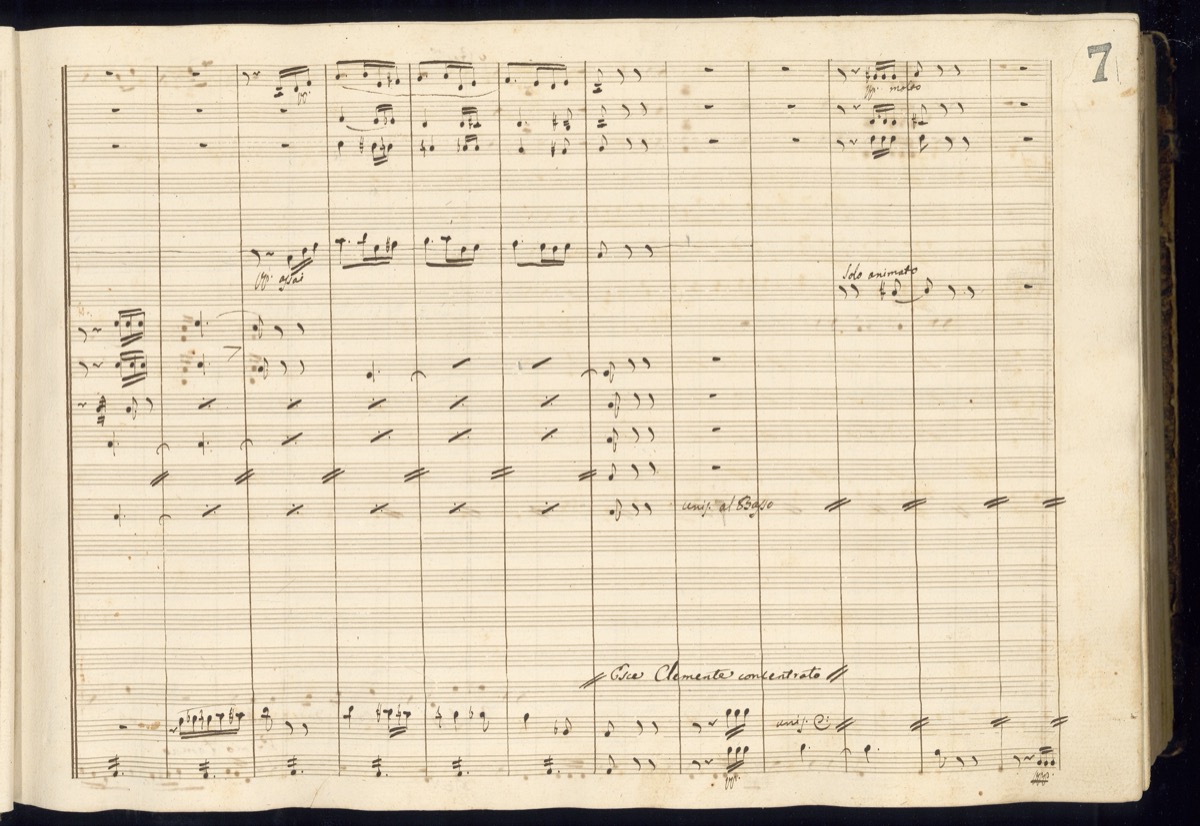 7
pp. molto
pp.
pp. assai
Solo animato
unis. al Basso
Esce Clemente concentrato
unis.
pp.
ppp.